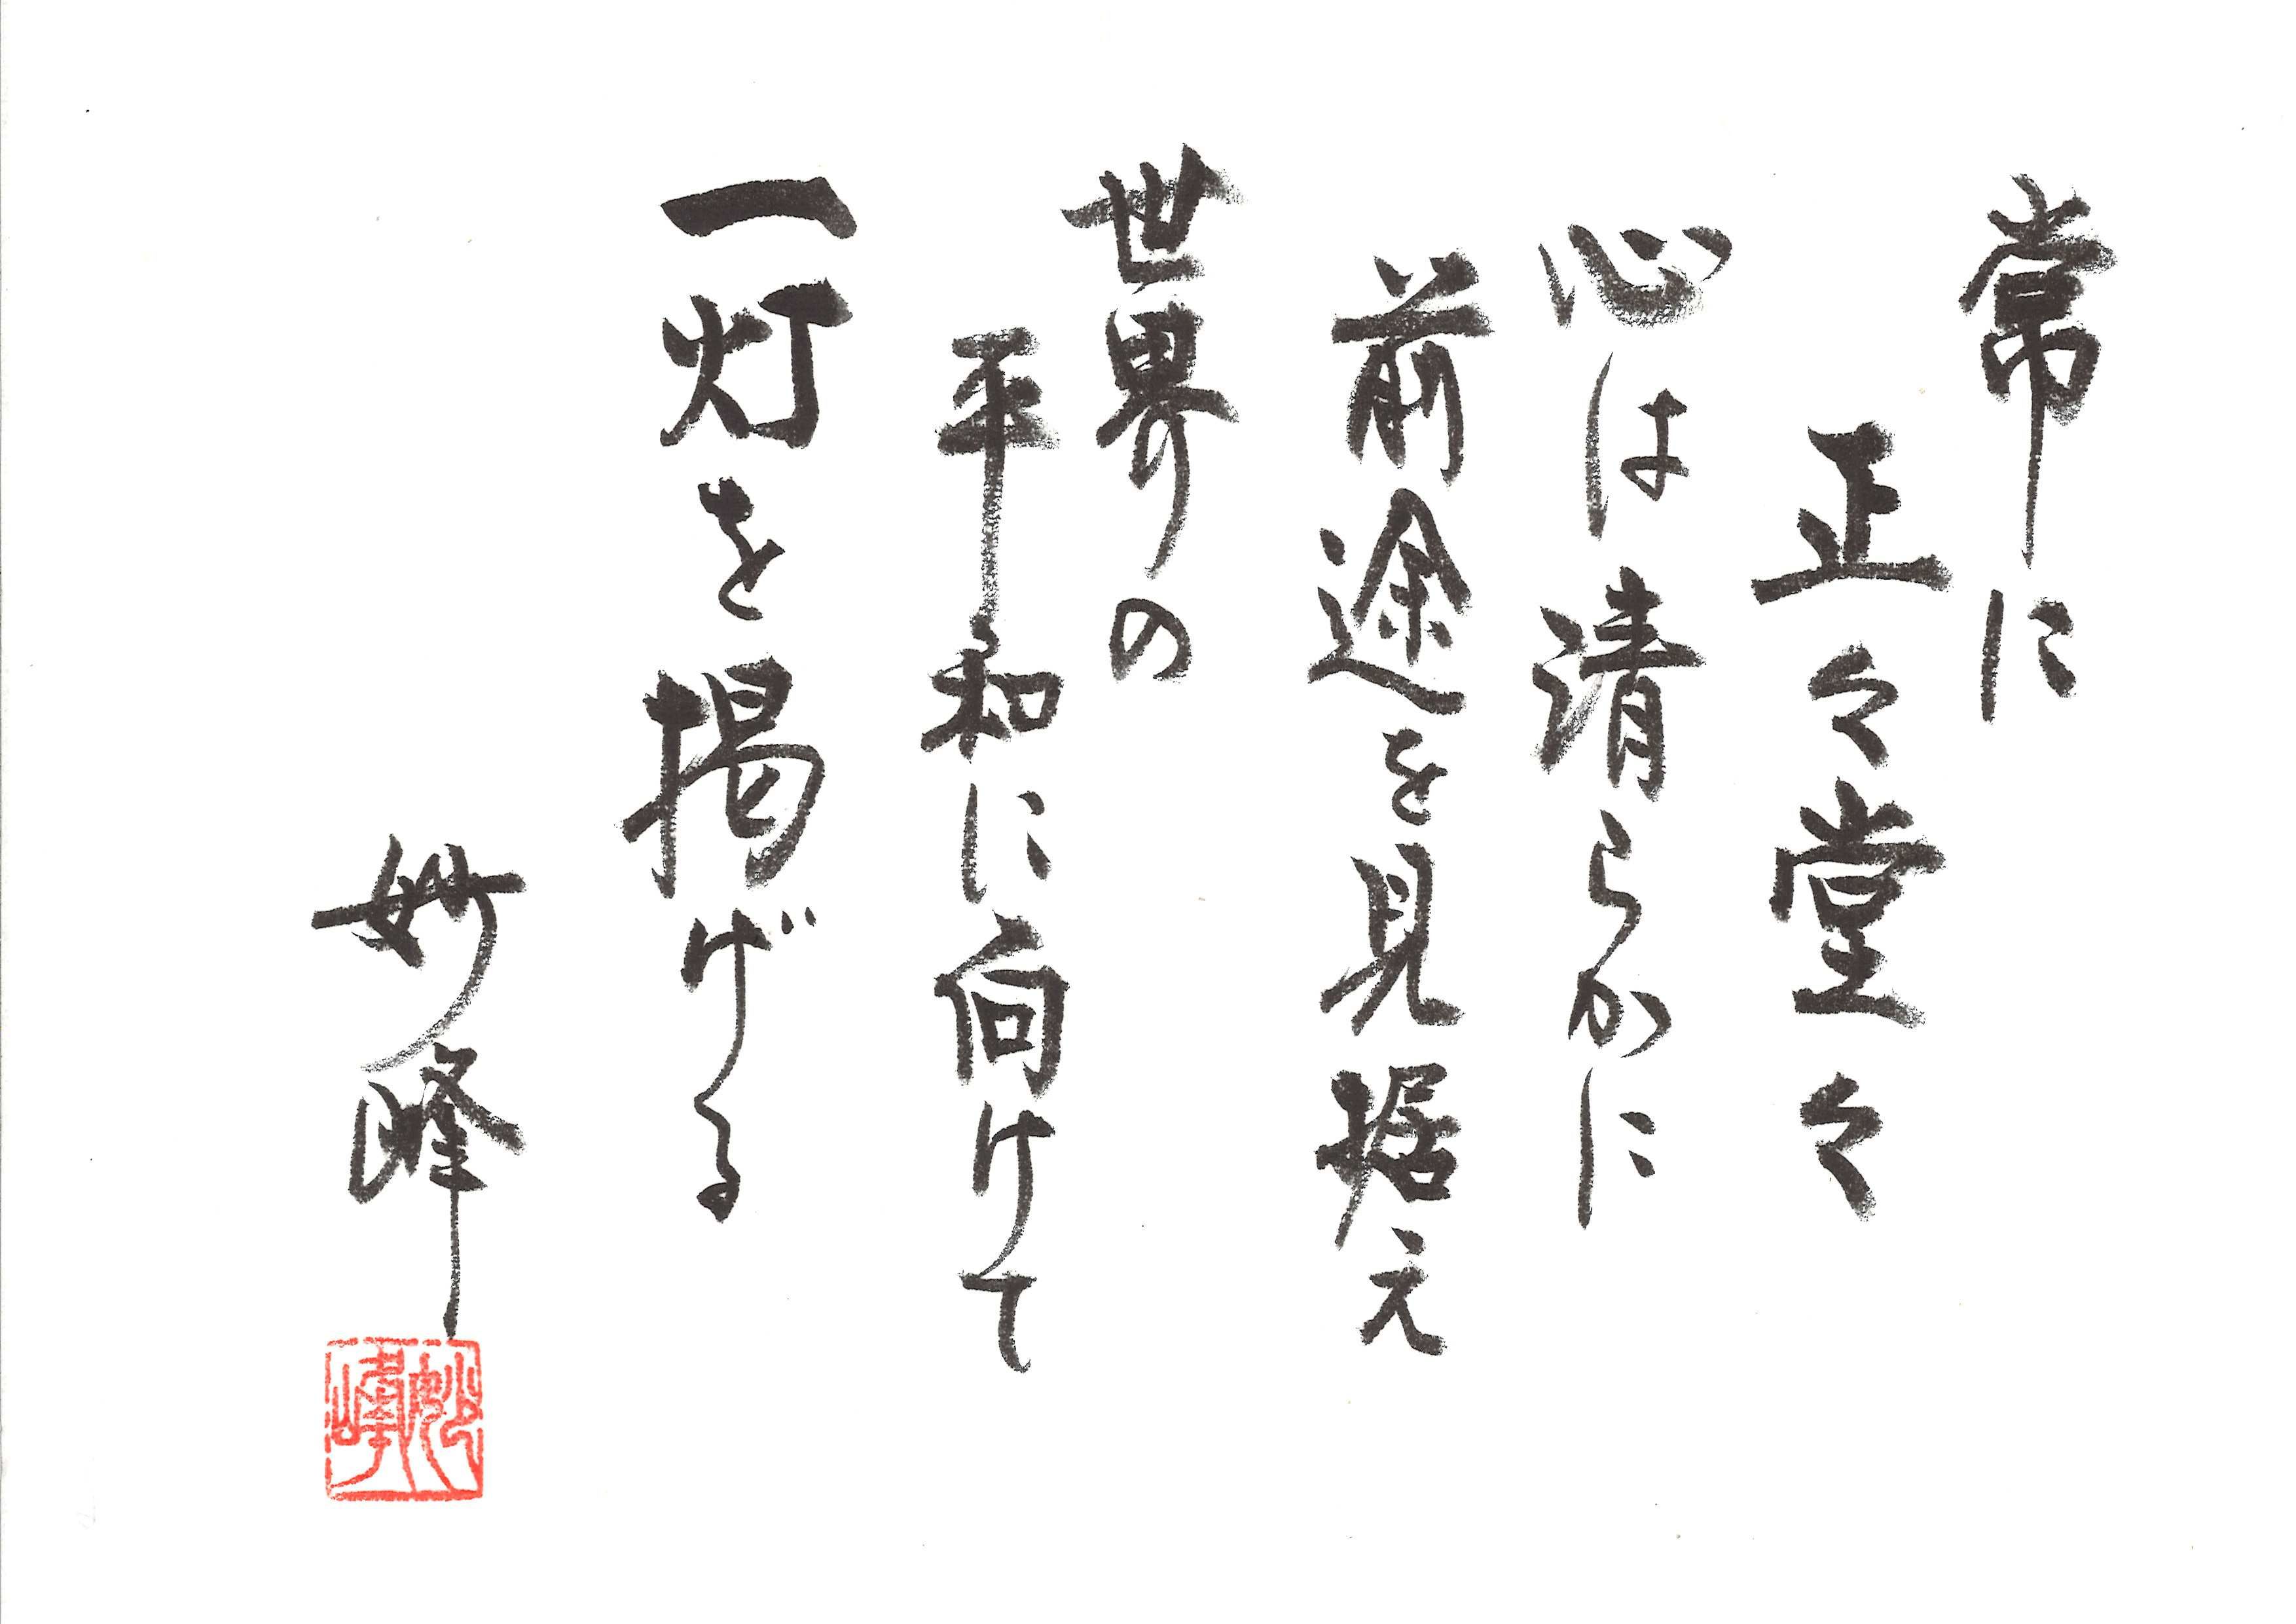 常に
正々堂々
心は清らかに
前途を見据え
世界の
平和に向けて
一灯を掲げる
妙峰
妙峰